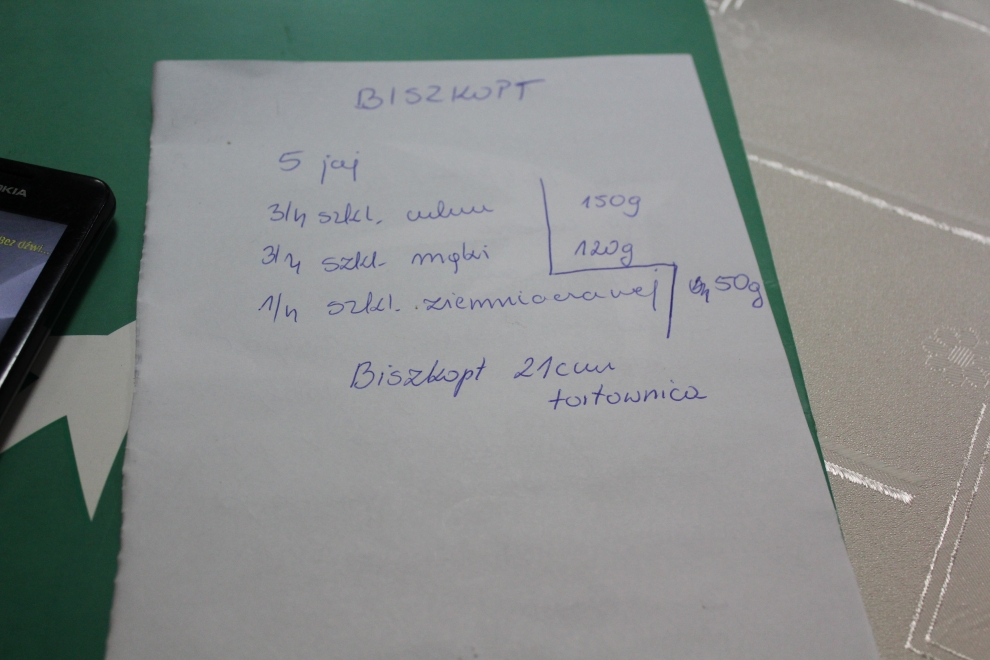 BISZKOPT
5 jaj
3/4 szkl. cukru 150g
3/4 szkl. mąki 120g
1/4 szkl. ziemniaczanej 50g
Biszkopt 21cm
tortownica
KIA
Bez dźwi